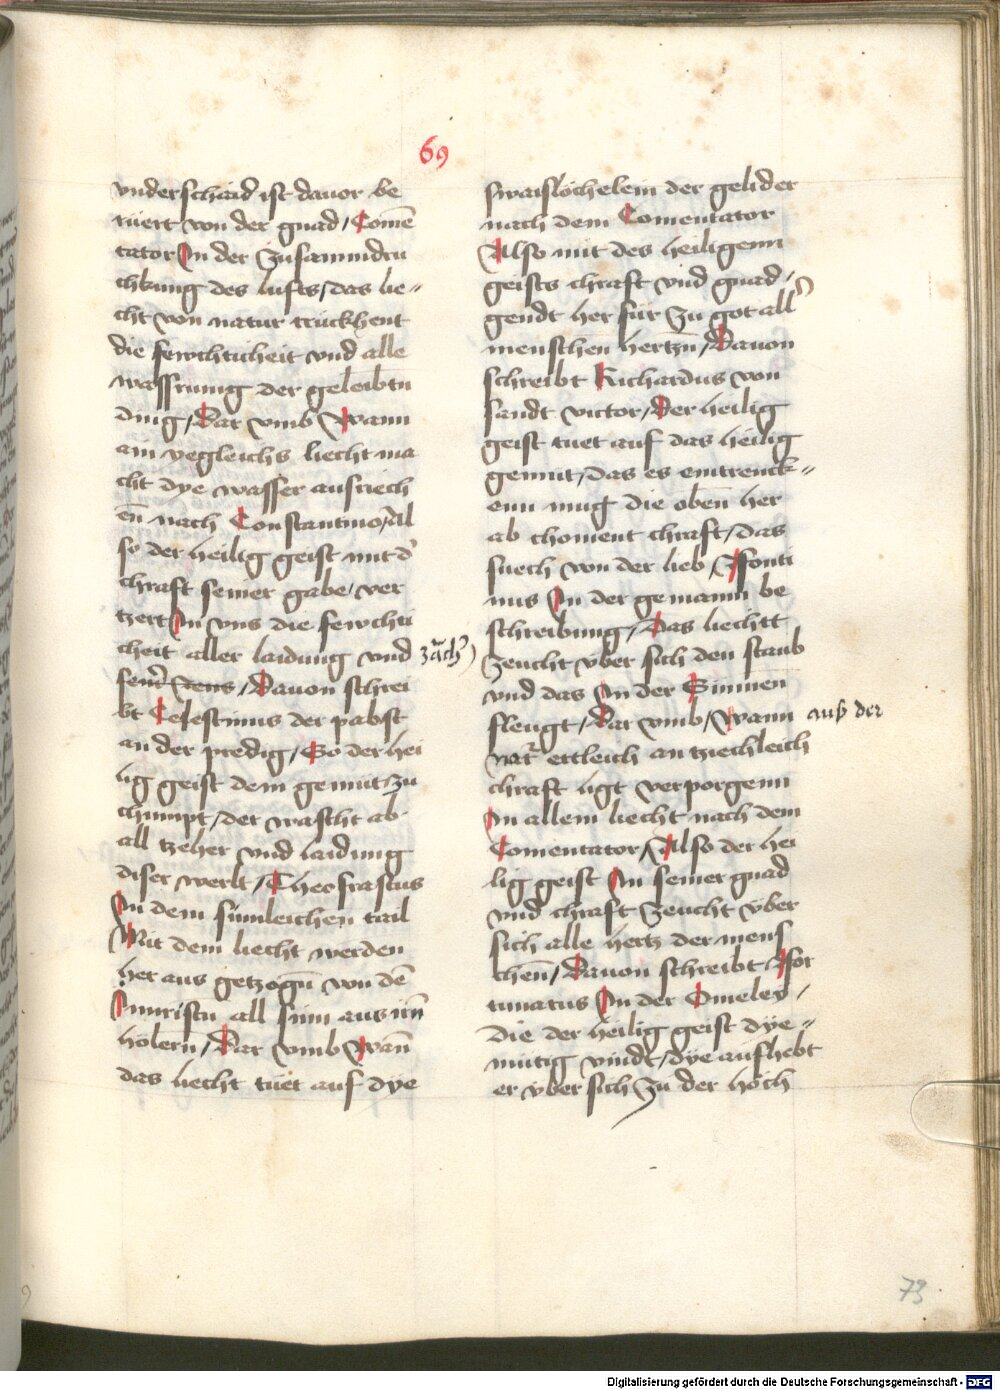 69
vnderschaid ist dauor be
rüert von der gnad / Comē
tator In der Zusammdru
chkung des lufts / das lie〃
cht von natur trückhent
die fewchticheit vnd alle
wassrung der geleibtn
ding / Dar vmb Wann
ain yegleichs liecht ma
cht dye wasser aufriech
en̄ nach Constantino / Al
so der heilig geist mit d'
chraft seiner gabe / ver
tzert In vns die fewchti
cheit aller laidung vnd zäch')
/ Dauon schrei
bt Celestinus der pabst
an der predig / So der hei
lig geist dem gemüt zu
chumpt / der wascht ab
all tzeher vnd laidung
diser werlt / Theofrastus
In dem sinnleichen tail
Mit dem liecht werden
her aus getzogn̄ von dē
all sinn aus irn̄
hölern / Dar vmb Wan̄
das liecht tüet auf dye
swaislöchelein der gelider
nach dem Comentator
Also mit des heiligenn
geists chraft vnd gnad /
gendt her für Zu got all'
menschen hertzn̄ / Dauon
schreibt Richardus von
sandt victor / Der heilig
geist tuet auf das heilig
gemüt / das es eintrenck〃
enn mug die oben her
ab choment chraft / das
suech von der lieb /
nus In der gemainn be
schreibung / Das liechtt
Zeucht vber sich den staub
vnd das In der Sunnen
fleugt / Dar vmb / Wann auß der
nat' ettleich an tziechleich
chraft ligt verporgenn
In allem liecht nach dem
Comentator / Also der hei
lig geist In seiner gnad
vnd chraft Zeucht vber
sich alle hertz der mens
chen̄ / Dauon schreibt ffor
tunatus In der Omeley /
Die der heilig geist dye〃
mütig vindt / dye aufhebt
er vber sich Zu der höch
73
Digitalisierung gefördert durch die Deutsche Forschungsgemeinschaft - DFG